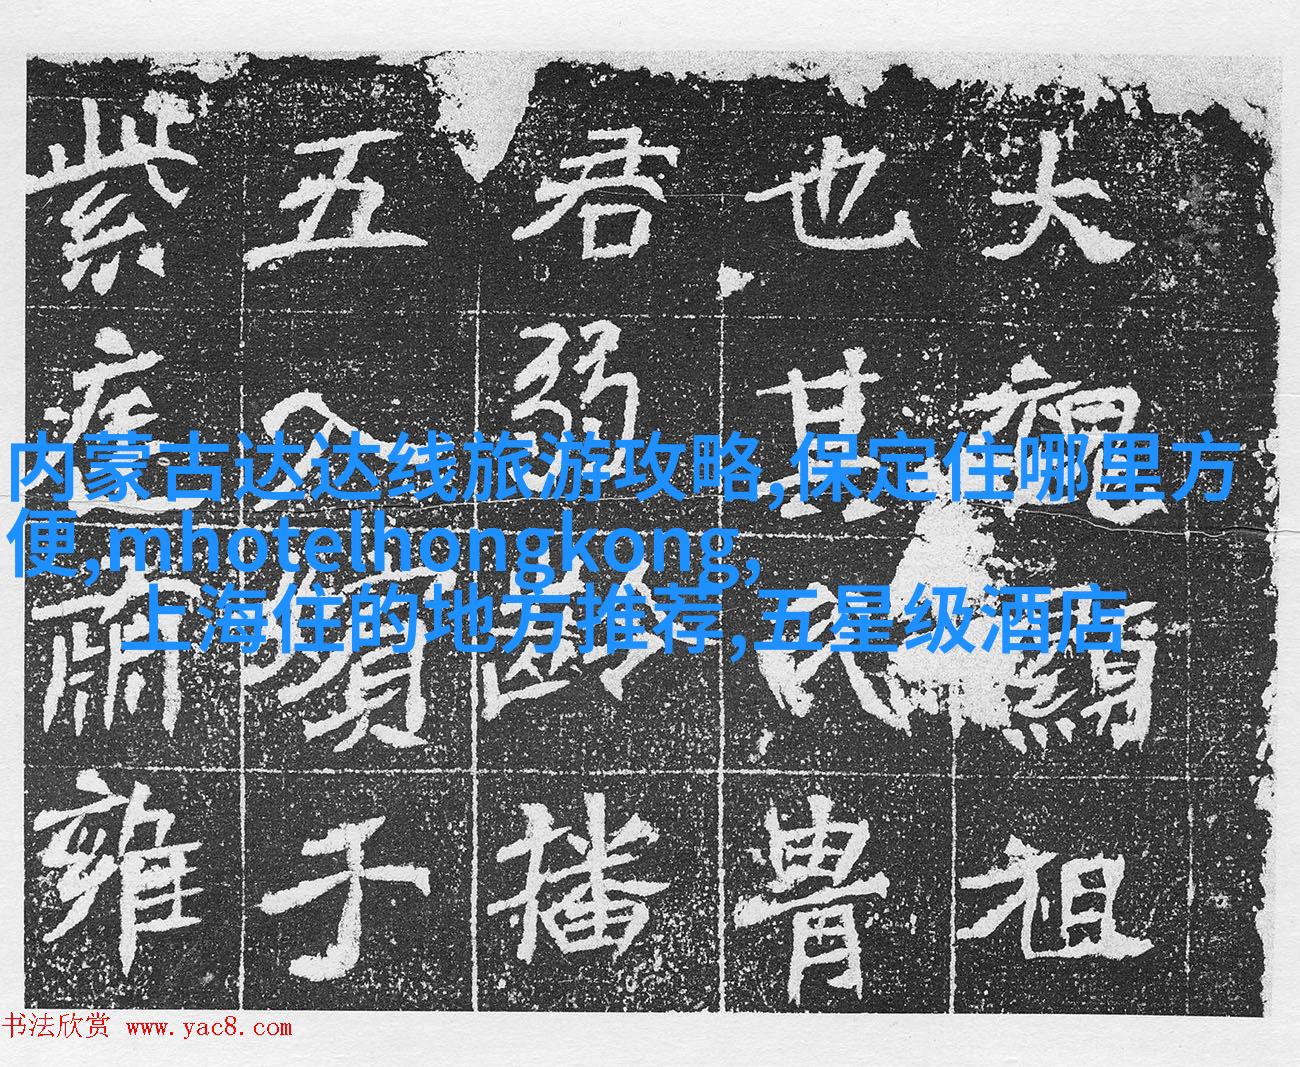 大魏□顯祖
也其□冑
君弱齡播
五□□于
紫庭□雍
内蒙古达达线旅游攻略,保定住哪里方
便,mhotelhongkong,
上海住的地方推荐,五星级酒店
书法欣赏 www.yac8.com